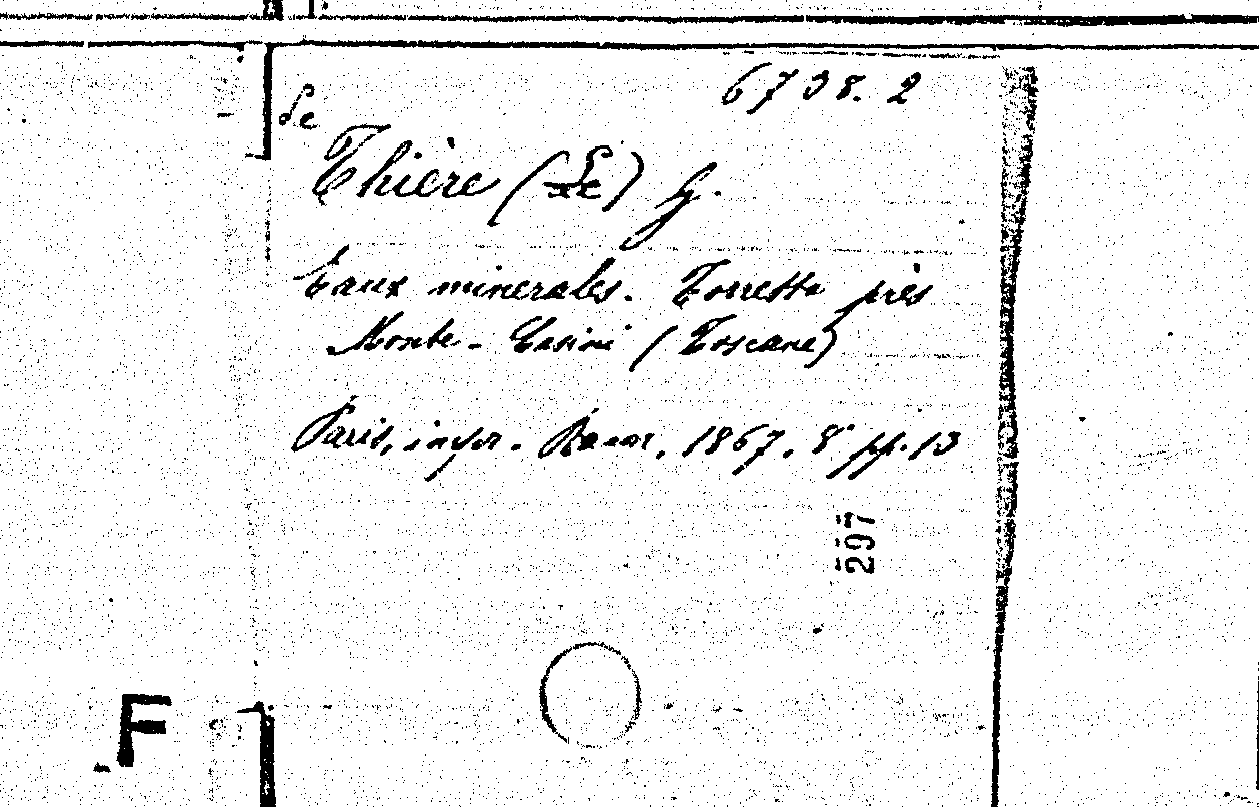 6738. 2
Le
Thière (Le) G.
Eaux minerales. Torretta près
Monte-Casini (Toscane)
Paris, impr. 1867. 8° pp. 13
297
F